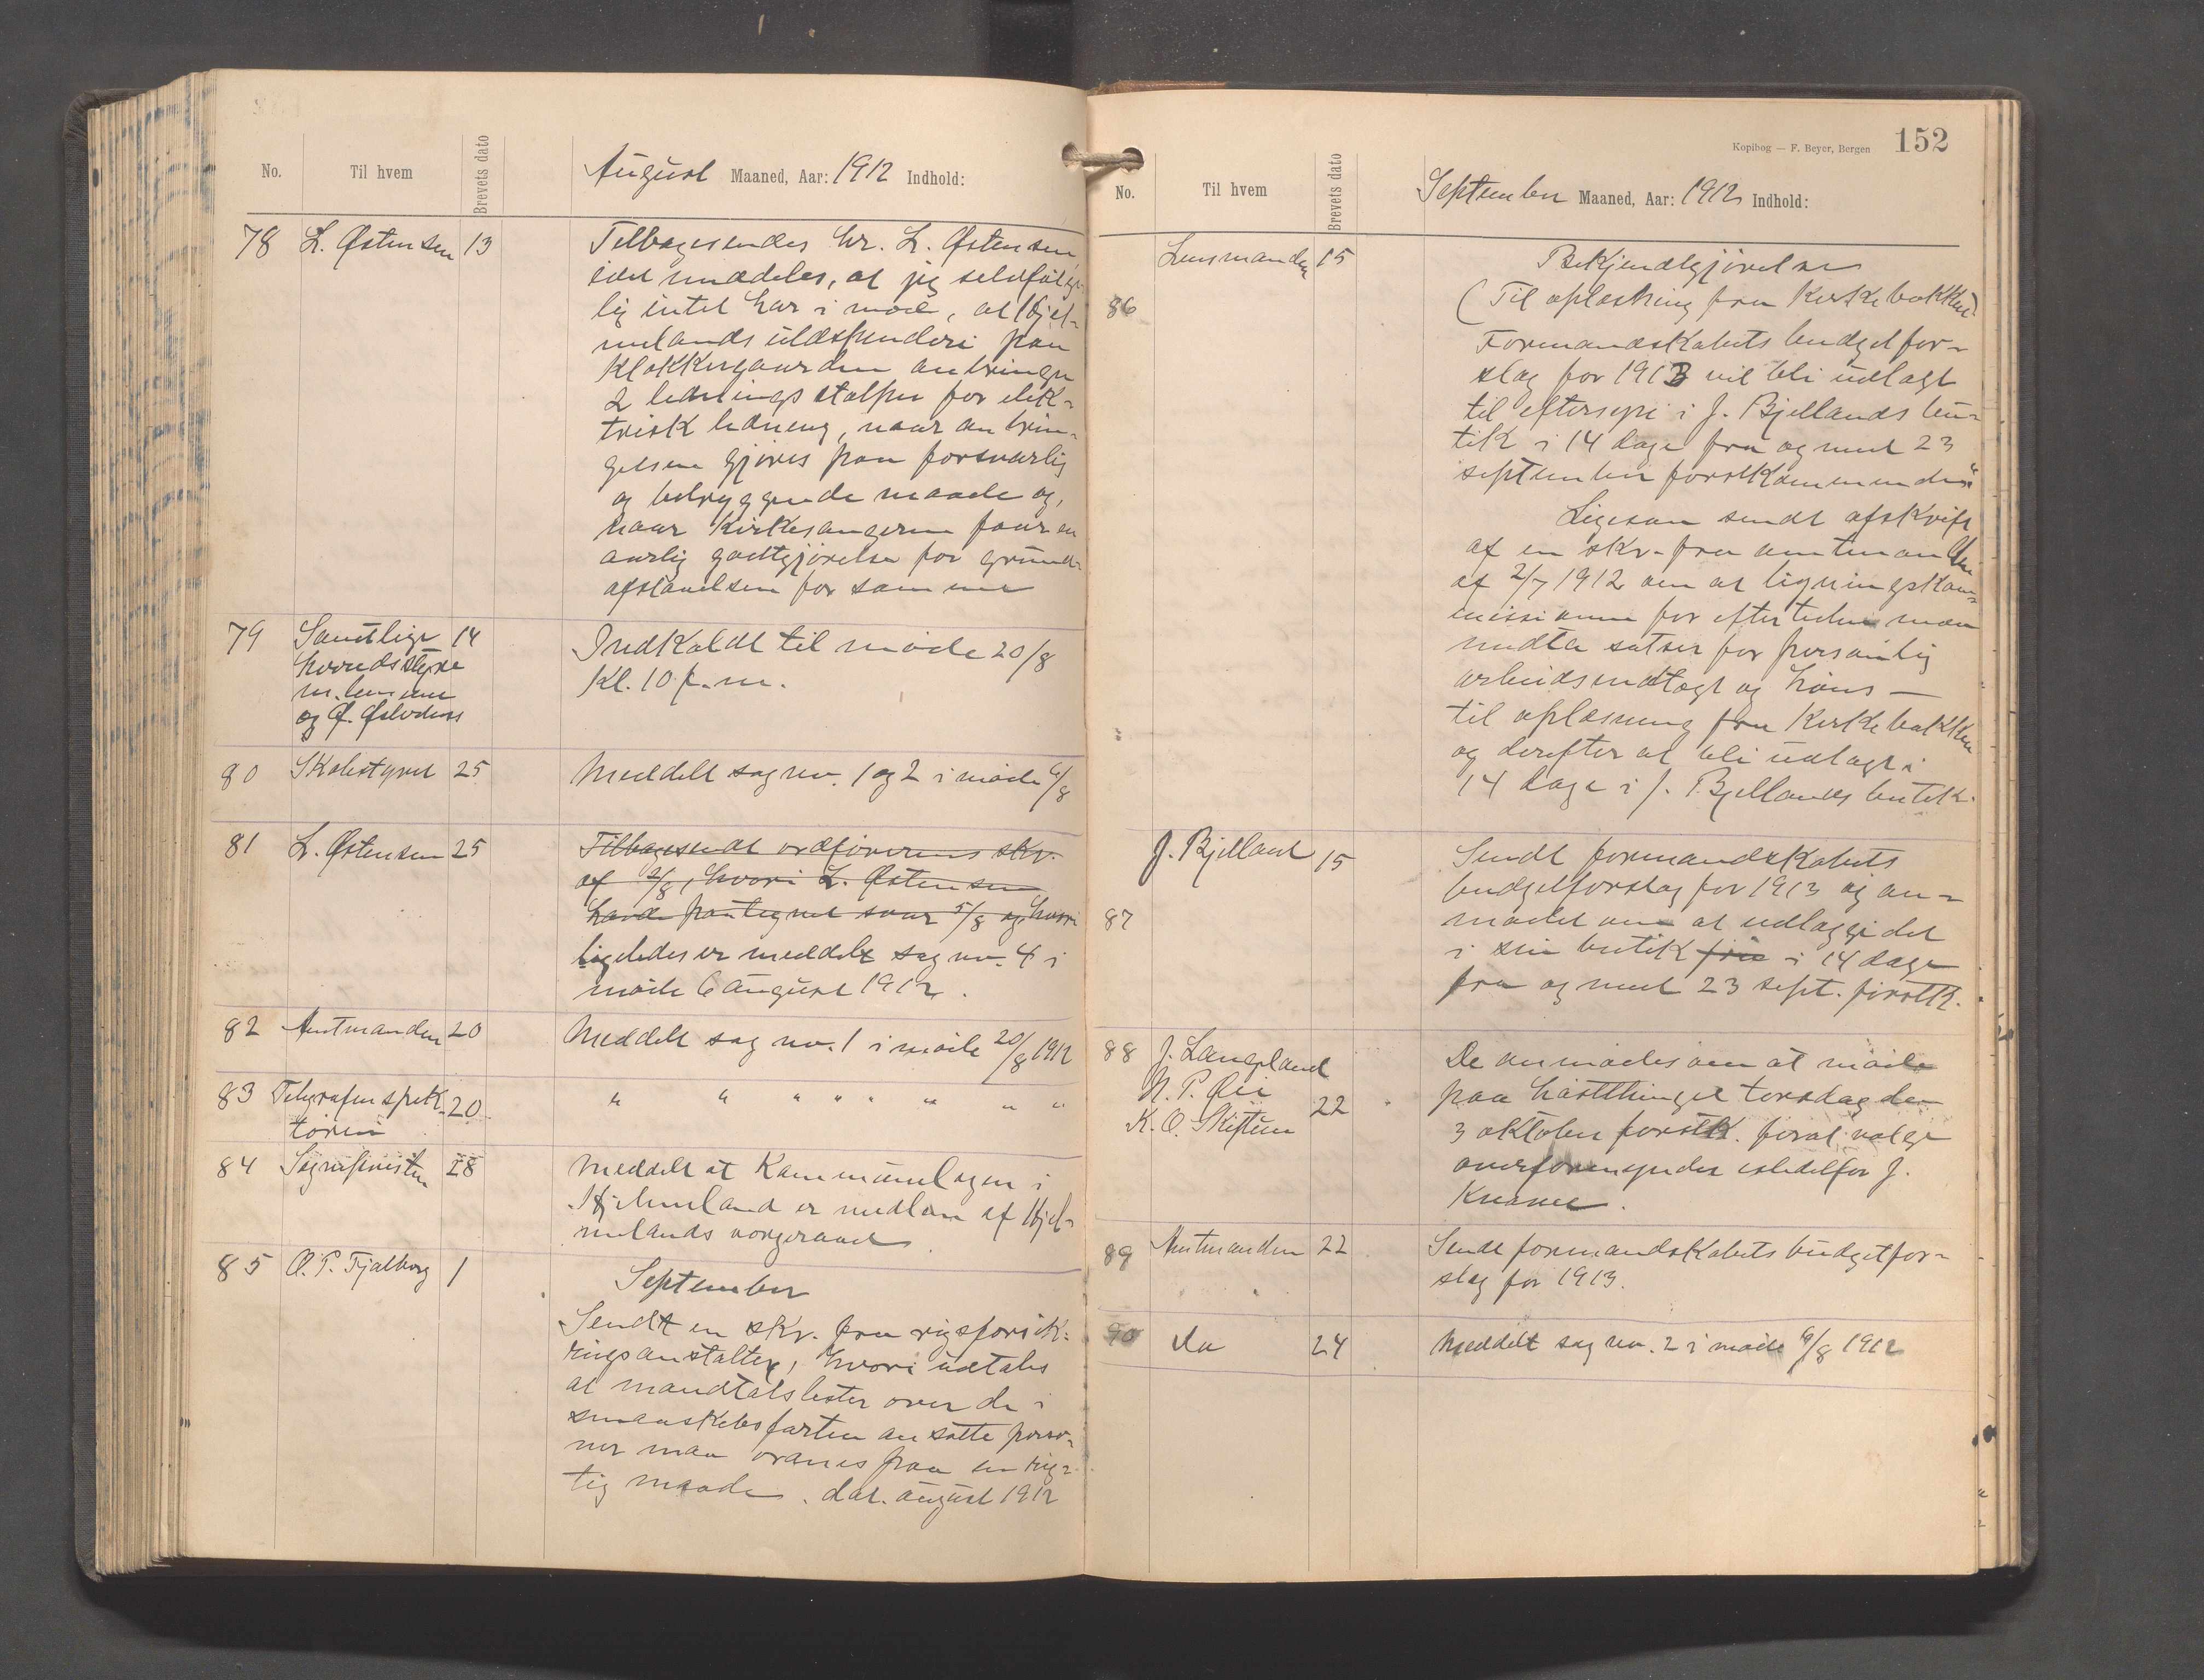 No. Til hvem Brevets dato August Maaned, Aar: 1912 Indhold:
78 L. Østensen 13 Tilbagesendes hr. L. Østensen
idet meddeles, at jeg selvfølge-
lig intet har i mod, at Hjel-
melands uldspinderi paa
Klokkergaarden anbringer
2 ledningsstolper for elek-
trisk ledning, naar anbrin-
gelsen gjøres paa forsvarlig
og betryggende maade og,
naar Kirkesangeren faar en
aarlig godtgjørelse for grund-
afstaaelsen for samme
79 Samtlige 14 Indkaldt til møde 20/8
herredsstyre Kl. 10 f.m.
m. lensmann
og Ø.
80 Skolestyret 25 Meddelt sag no. 1 og 2 i møde 6/8
81 L. Østensen 25 Tilbagesendt ordførerens skr.
af 2/8, hvori L. Østensen
havde paategnet svar 5/8 og hvori
ligeledes er meddelt sag no. 4 i
møde 6 august 1912.
82 Amtmanden 20 Meddelt sag no. 1 i møde 20/8 1912
83 Telegrafinspek- 20 " " " " " " " "
tøren
84 Sognepresten 28 Meddelt at Kommunelagen i
Hjelmeland er medlem af Hjel-
melands vergeraad
85 O. P. Tjalborg 1 September
Sendt en skr. fra rigsforsik-
ringsanstalten, hvori udtales
at mandtalslister over de i
smaaskibsfarten ansatte perso-
ner maa ordnes paa en rig-
tig maade. dat. august 1912
Kopibog — F. Beyer, Bergen 152
No. Til hvem Brevets dato September Maaned, Aar: 1912 Indhold:
86 Lensmanden 15 Bekjendtgjørelse
(Til oplæsning fra Kirkebakken)
Formandskabets budgetfor-
slag for 1913 vil bli udlagt
til eftersyn i J. Bjellands bu-
tik i 14 dage fra og med 23
september førstkommende"
Ligesaa sendt afskrift
af en skr. fra amtmanden
af 2/7 1912 om at ligningskom-
missionen for eftertiden maa
nedta satser for personlig
arbeidsindtægt og høns —
til oplæsning fra Kirkebakken
og derefter at bli udlagt i
14 dage i J. Bjellands butik.
87 J. Bjelland 15 Sendt formandskabets
budgetforslag for 1913 og an-
modet om at udlægge det
i sin butik fra i 14 dage
fra og med 23 sept. førstk.
88 J. Langeland De anmodes om at møde
N. P. Øie 22 paa høstthinget torsdag den
K. O. Skiftun 3 oktober førstk. forat vælge
overformynder istedetfor J.
89 Amtmanden 22 Sendt formandskabets budgetfor-
slag for 1913.
90 Da 24 Meddelt sag no. 2 i møde 6/8 1912